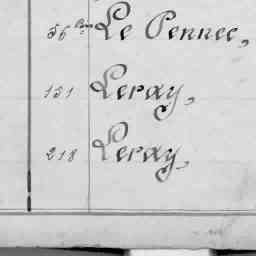 56 bis Le Pennec,
151 Leray,
218 Leray,